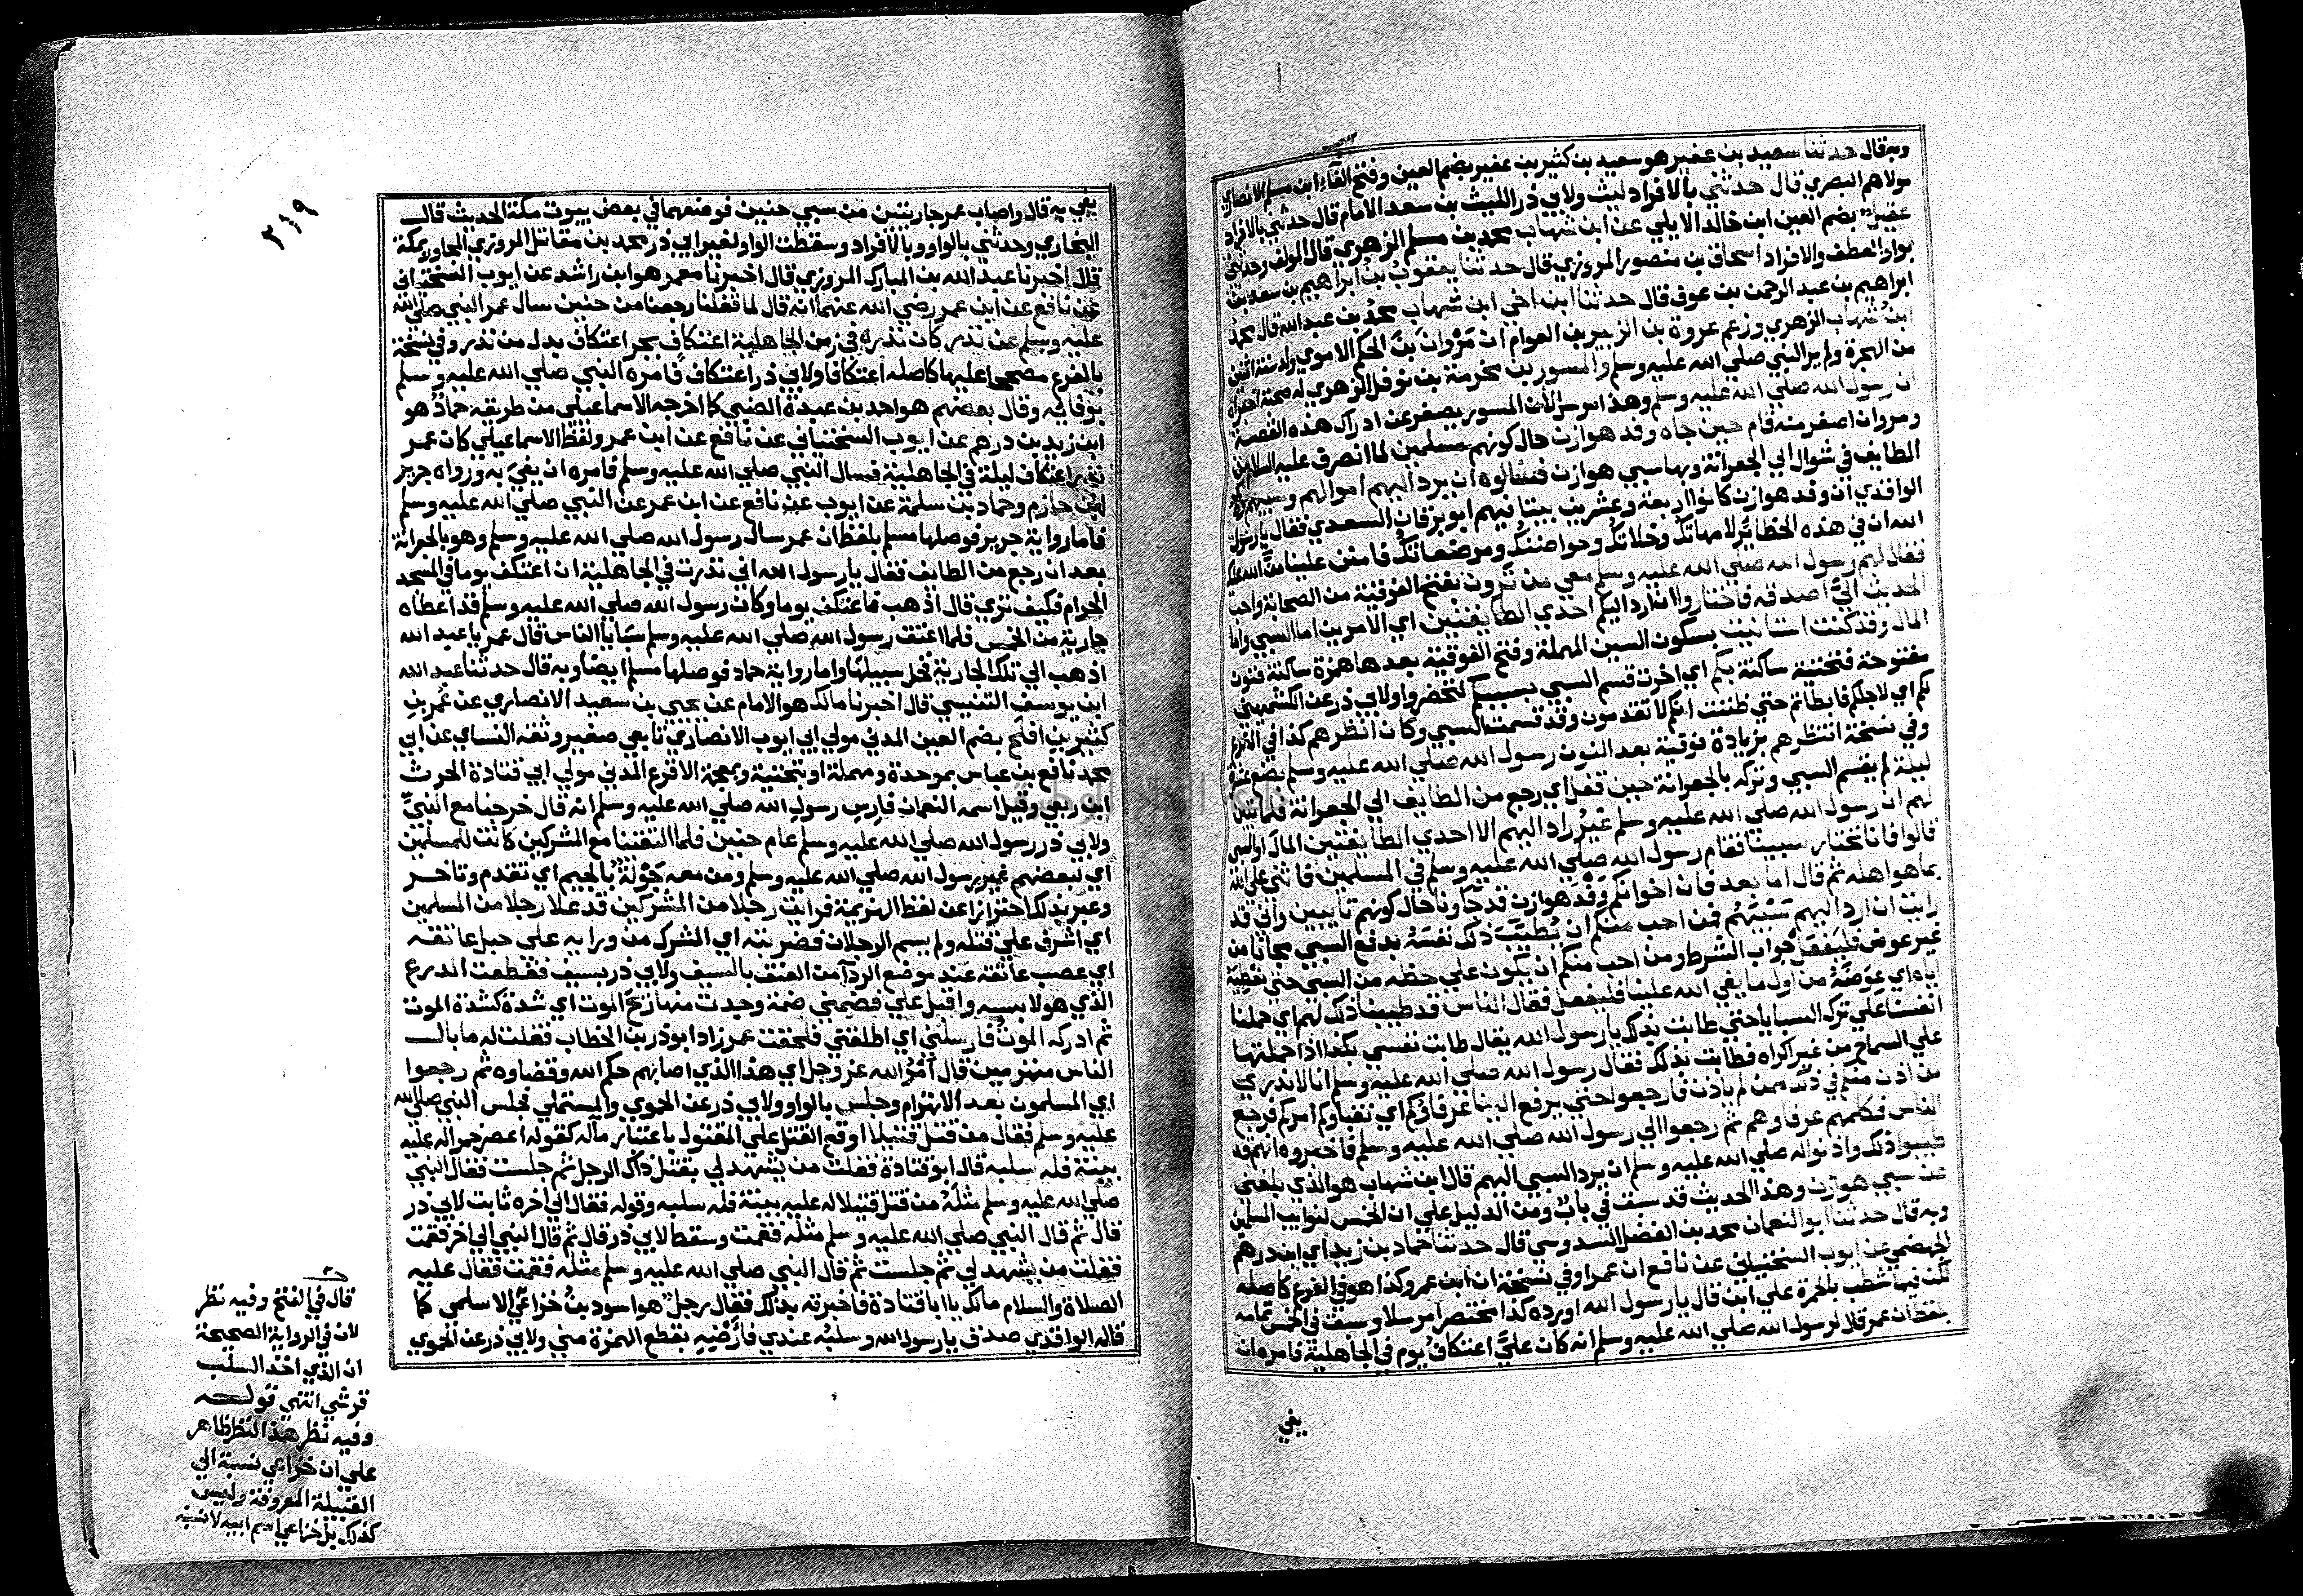 وبه قال حدثنا سعيد بن عفير هو سعيد بن كثير بن عفير بضم العين وفتح الفاء ابن مسلم الانصاري
مولاهم البصري قال حدثني بالافراد ليث ولابي ذر الليث بن سعد الامام قال حدثني بالافراد
عقيل بضم العين ابن خالد الايلي عن ابن شهاب محمد بن مسلم الزهري قال المولف وحدثني
بواو العطف والافراد اسحاق بن منصور المروزي قال حدثنا يعقوب بن ابراهيم بن سعد بن
ابراهيم بن عبد الرحمن بن عوف قال حدثنا ابن اخي ابن شهاب محمد بن عبد الله قال محمد
ابن شهاب الزهري وزعم عروة بن الزبير بن العوام ان مروان بن الحكم الاموي ولد سنة اثنين
من الهجرة ولم ير النبي صلي الله عليه وسلم والمسور بن مخرمة بن نوفل الزهري له صحبة اخبراه
ان رسول الله صلي الله عليه وسلم وهذا مرسل لان المسور يصغر عن ادراك هذه القصة
ومروان اصغر منه قام حين جاه وفد هوازن حال كونهم مسلمين لما انصرف عليه السلام من
الطايف في شوال الي الجعرانة وبها سبي هوازن فسالوه ان يرد اليهم اموالهم وسبيهم
الواقدي ان وفد هوازن كانوا اربعة وعشرين بيتا فيهم ابو برقان السعدي فقال يا رسول
الله ان في هذه الحظاير لامهاتك وخلاتك وحواضنك ومرضعاتك فامنن علينا من الله عليك
فقال لهم رسول الله صلي الله عليه وسلم معي من ترون بفتح الفوقية من الصحابة واحب
الحديث الي اصدقه فاختاروا ان ارد اليكم احدي الطايفتين اي الامرين اما السبي واما
المال وقد كنت استانيت بسكون السين المهملة وفتح الفوقية بعدها همزة ساكنة فنون
مفتوحة فتحتية ساكنة بكم اي اخرت قسم السبي بسببكم لتحضروا ولابي ذر عن الكشميهني
لكم اي لاجلكم فابطاتم حتي ظننت انكم لا تقدمون وقد قسمت السبي وكان انظرهم كذا في الفرع
وفي نسخة انتظرهم بزيادة فوقية بعد النون رسول الله صلي الله عليه وسلم بضع عشرة
ليلة لم يقسم السبي وتركه بالجعرانة حين قفل اي رجع من الطايف الي الجعرانة فلما تبين
لهم ان رسول الله صلي الله عليه وسلم غير راد اليهم الا احدي الطايفتين المال او السبي
قالوا فانا نختار سبينا فقام رسول الله صلي الله عليه وسلم في المسلمين فاثني علي الله
بما هو اهله ثم قال اما بعد فان اخوانكم وفد هوازن قد جاونا حال كونهم تايبين واني قد
رايت ان ارد اليهم سبيهم فمن احب منكم ان يطيب ذلك نفسه بدفع السبي مجانا من
غير عوض فليفعل جواب الشرط ومن احب منكم ان يكون علي حظه من السبي حتي نعطيه
اياه اي عوضه من اول ما يفي الله علينا فليفعل فقال الناس قد طيبنا ذلك لهم اي حملنا
انفسنا علي ترك السبايا حتي طابت بذلك يا رسول الله يقال طابت نفسي بكذا اذا حملتها
علي السماح من غير اكراه فطابت بذلك فقال رسول الله صلي الله عليه وسلم انا لا ندري
من اذن منكم في ذلك ممن لم ياذن فارجعوا حتي يرفع الينا عرفاوكم اي نقباوكم امركم فرجع
الناس فكلمهم عرفاوهم ثم رجعوا الي رسول الله صلي الله عليه وسلم فاخبروه انهم قد
طيبوا ذلك واذنوا له صلي الله عليه وسلم ان يرد السبي اليهم قال ابن شهاب هو الذي بلغني
عن سبي هوازن وهذا الحديث قد سبق في باب ومن الدليل علي ان الخمس لنوايب المسلمين
وبه قال حدثنا ابو النعمان محمد بن الفضل السدوسي قال حدثنا حماد بن زيد اي ابن درهم
الجهضمي عن ايوب السختياني عن نافع ان عمر او في نسخة ان ابن عمر وكذا هو في الفرع كاصله
لكن فيها شطب بالحمرة علي ابن قال يا رسول الله اورده كذا مختصرا مرسلا وسبق في الخمس تمامه
بلفظ ان عمر قال لرسول الله صلي الله عليه وسلم انه كان علي اعتكاف يوم في الجاهلية فامره ان
يفي
٢٤٩
يفي به قال واصاب عمر جاريتين من سبي حنين فوضعهما في بعض بيوت مكة الحديث قال
البخاري وحدثني بالواو وبالافراد وسقطت الواو لغير ابي ذر محمد بن مقاتل المروزي المجاور بمكة
قال اخبرنا عبد الله بن المبارك المروزي قال اخبرنا معمر هو ابن راشد عن ايوب السختياني
عن نافع عن ابن عمر رضي الله عنهما انه قال لما قفلنا رجعنا من حنين سال عمر النبي صلي الله
عليه وسلم عن نذر كان نذره في زمن الجاهلية اعتكاف بجر اعتكاف بدل من نذر وفي نسخة
بالفرع مصححا عليها كاصله اعتكافا ولابي ذر اعتكاف فامره النبي صلي الله عليه وسلم
بوفايه وقال بعضهم هو احمد بن عبدة الضبي كما اخرجه الاسماعيلي من طريقه حماد هو
ابن زيد بن درهم عن ايوب السختياني عن نافع عن ابن عمر ولفظ الاسماعيلي كان عمر
نذر اعتكاف ليلة في الجاهلية فسال النبي صلي الله عليه وسلم فامره ان يفي به ورواه جرير
ابن حازم وحماد بن سلمة عن ايوب عن نافع عن ابن عمر عن النبي صلي الله عليه وسلم
فاما رواية جرير فوصلها مسلم بلفظ ان عمر سال رسول الله صلي الله عليه وسلم وهو بالجعرانة
بعد ان رجع من الطايف فقال يا رسول الله اني نذرت في الجاهلية ان اعتكف يوما في المسجد
الحرام فكيف تري قال اذهب فاعتكف يوما وكان رسول الله صلي الله عليه وسلم قد اعطاه
جارية من الخمس فلما اعتق رسول الله صلي الله عليه وسلم سبايا الناس قال عمر يا عبد الله
اذهب الي تلك الجارية فخل سبيلها واما رواية حماد فوصلها مسلم ايضا وبه قال حدثنا عبد الله
ابن يوسف التنيسي قال اخبرنا مالك هو الامام عن يحيي بن سعيد الانصاري عن عمر بن
كثير بن افلح بضم العين المدني مولي ابي ايوب الانصاري تابعي صغير وثقه النساي عن ابي
محمد نافع بن عباس بموحدة ومهملة او بتحتية ومعجمة الاقرع المدني مولي ابي قتادة الحرث
ابن ربعي وقيل اسمه النعمان فارس رسول الله صلي الله عليه وسلم انه قال خرجنا مع النبي
ولابي ذر رسول الله صلي الله عليه وسلم عام حنين فلما التقينا مع المشركين كانت للمسلمين
اي لبعضهم غير رسول الله صلي الله عليه وسلم ومن معه جولة بالجيم اي تقدم وتاخر
وعبر بذلك احترازا عن لفظ الهزيمة فرايت رجلا من المشركين قد علا رجلا من المسلمين
اي اشرف علي قتله ولم يسم الرجلان فضربته اي المشرك من ورايه علي حبل عاتقه
اي عصب عاتقه عند موضع الردا من العنق بالسيف ولابي ذر بسيف فقطعت الدرع
الذي هو لابسه واقبل علي فضمني ضمة وجدت منها ريح الموت اي شدة كشدة الموت
ثم ادركه الموت فارسلني اي اطلقني فلحقت عمر زاد ابو ذر بن الخطاب فقلت له ما بال
الناس منهزمين قال امر الله عز وجل اي هذا الذي اصابهم حكم الله وقضاوه ثم رجعوا
اي المسلمون بعد الانهزام وجلس بالواو ولابي ذر عن الحموي والمستملي فجلس النبي صلي الله
عليه وسلم فقال من قتل قتيلا اوقع القتل علي المقتول باعتبار ماله كقوله اعصر خمرا له عليه
بينة فله سلبه قال ابو قتادة فقلت من يشهد لي بقتل ذاك الرجل ثم جلست فقال النبي
صلي الله عليه وسلم مثله من قتل قتيلا له عليه بينة فله سلبه وقوله فقال الي اخره ثابت لابي ذر
قال ثم قال النبي صلي الله عليه وسلم مثله فقمت وسقط لابي ذر قال ثم قال النبي الي اخر فقمت
فقلت من يشهد لي ثم جلست ثم قال النبي صلي الله عليه وسلم مثله فقمت فقال عليه
الصلاة والسلام مالك يا ابا قتادة فاخبرته بذلك فقال رجل هو اسود بن خزاعي الاسلمي كما
قاله الواقدي صدق يا رسول الله وسلبه عندي فارضه بقطع الهمزة مني ولابي ذر عن الحموي
قال في الفتح وفيه نظر
لان في الرواية الصحيحة
ان الذي اخذ السلب
قرشي انتهي قوله
وفيه نظر هذا النظر ظاهر
علي ان خزاعي نسبة الي
القبيلة المعروفة وليس
كذلك بل خزاعي اسم ابيه لا نسبة